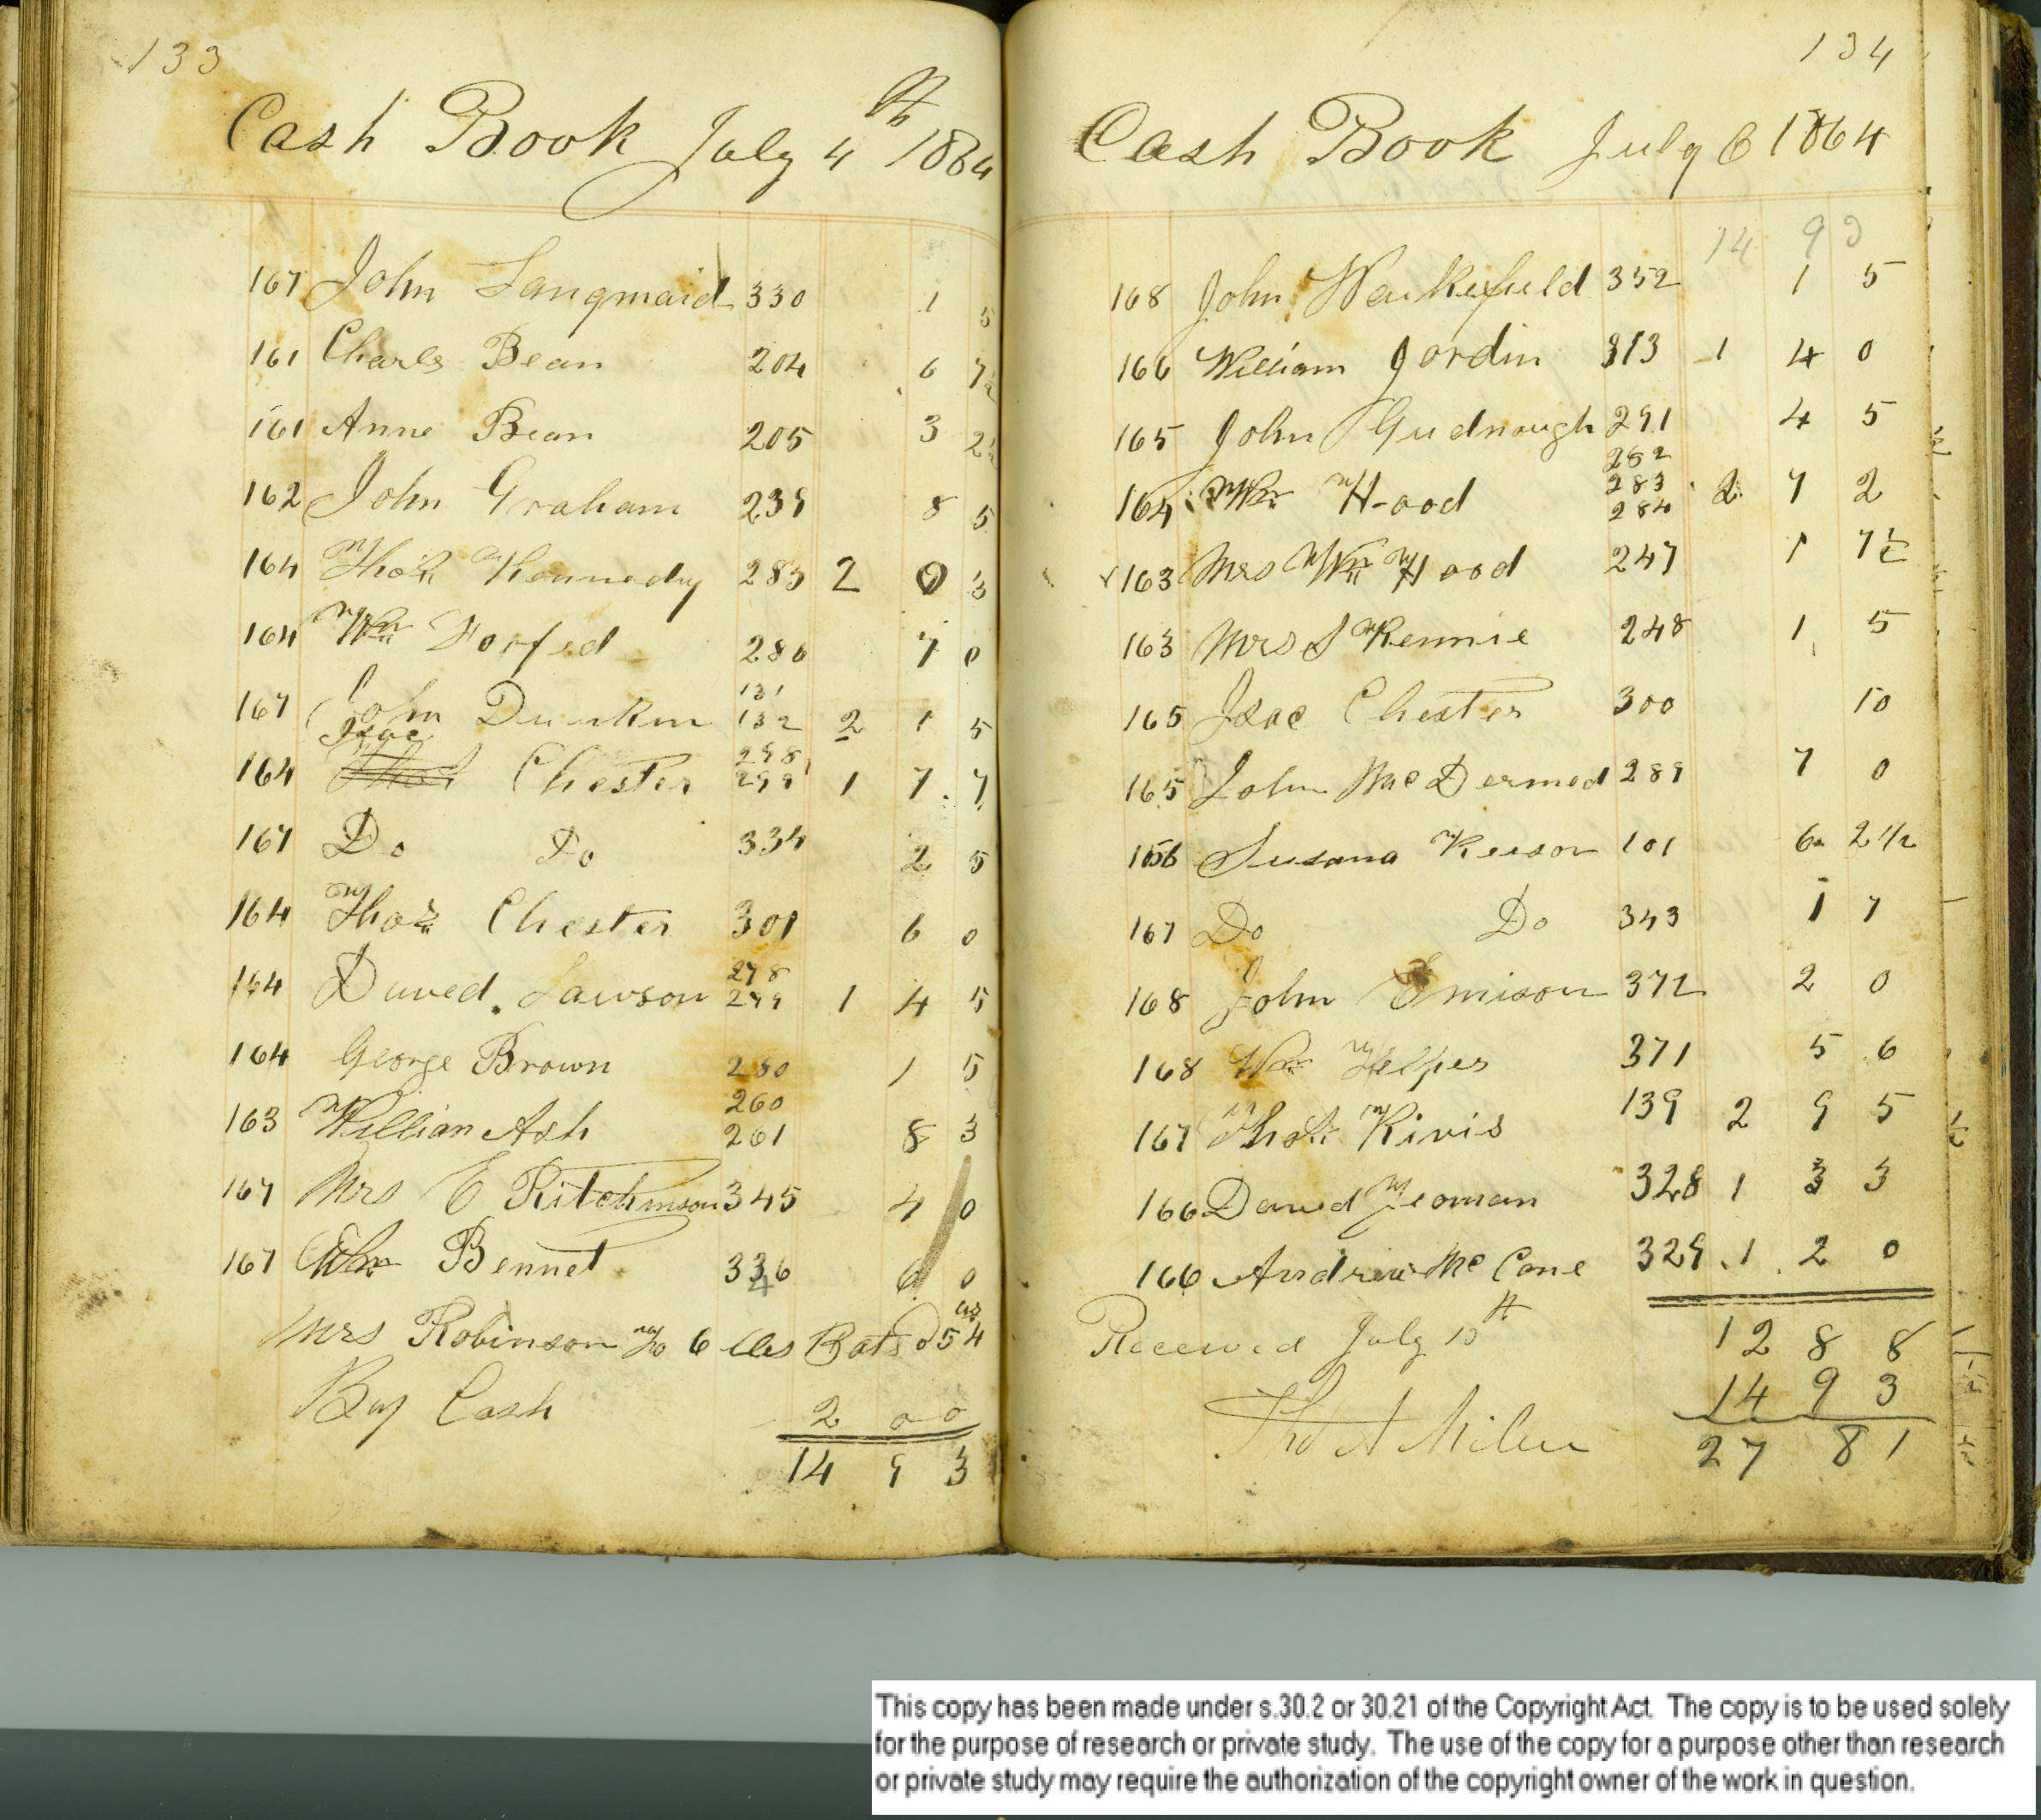 133
Cash Book July 4th 1864
167 John Langmaid 330 1 5
161 Charls Bean 204 6 7½
161 Anne Bean 205 3 2½
162 John Graham 239 8 5
164 Thos Kennedy 285 2 0 3
164 Wm Horfed 286 7 0
131
167 John Dunken 132 2 1 5
Isac 298
164 Chester 299 1 7 7
167 Do Do 334 2 5
164 Thos Chester 301 6 0
278
164 Daved Lawson 279 1 4 5
164 George Brown 280 1 5
260
163 Willian Ash 261 8 3
167 Mrs E Ritchinson 345 4 0
167 Wm Bennet 336 6 0
4
Mrs Robinson To 6 lbs 54
By Cash 2 0 0
14 9 3
134
Cash Book July 6 1864
14 9 3
168 John Wakefield 352 1 5
166 William Jordin 313 1 4 0
165 John Gudnough 291 4 5
282
283
164 Wm Hood 284 2 7 2
163 Mrs Wm Hood 247 1 7½
163 Mrs S Rennie 248 1 5
165 Isac Chester 300 10
165 John MacDermod 289 7 0
156 Susana 101 6 2 1/2
167 Do Do 343 1 7
168 John Emison 372 2 0
168 Wm Helpes 371 5 6
167 Thos Rivis 139 2 9 5
166 David Yeoman 328 1 3 3
166 Andrew McCane 329 1 2 0
Received July 10th 12 8 8
14 9 3
Thos A Milne 27 8 1
This copy has been made under s.30.2 or 30.21 of the Copyright Act. The copy is to be used solely
for the purpose of research or private study. The use of the copy for a purpose other than research
or private study may require the authorization of the copyright owner of the work in question.